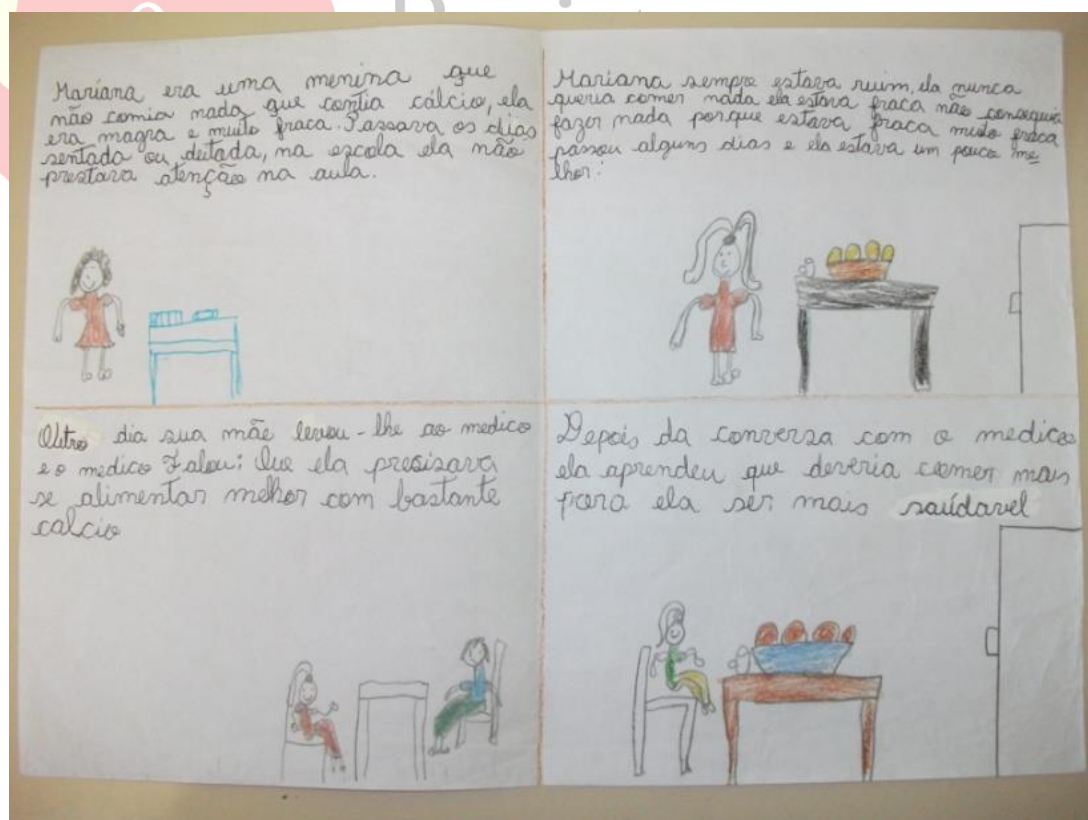 Mariana era uma menina que
não comia nada que contia cálcio, ela
era magra e muito fraca. Passava os dias
sentada ou deitada, na escola ela não
prestava atenção na aula.
Mariana sempre estava ruim, ela nunca
queria comer nada ela estava fraca não conseguia
fazer nada porque estava fraca muito fraca
passou alguns dias e ela estava um pouco me
lhor.
Outro dia sua mãe levou-lhe ao medico
e o medico falou: Que ela precisava
se alimentar melhor com bastante
calcio
Depois da conversa com o medico
ela aprendeu que deveria comer mais
para ela ser mais saúdavel